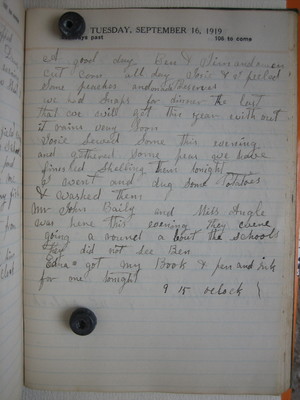 TUESDAY, SEPTEMBER 16, 1919
days past 106 to come
A good day Ben &
cut Corn all day & I peeled
Some peaches and made Preserves
we had Snaps for dinner the last
that we will get this year with out
it rains very Soon
Voice Sewed Some this evening
and gathered Some peas we have
finished Shelling them tonight
I went and dug Some Potatoes
& washed them
Mr John Baily and Miss Hugle
was here this evening they
going a round a bout the schools
they did not See Ben
got my Book & pen and ink
for me tonight
9 15 oclock